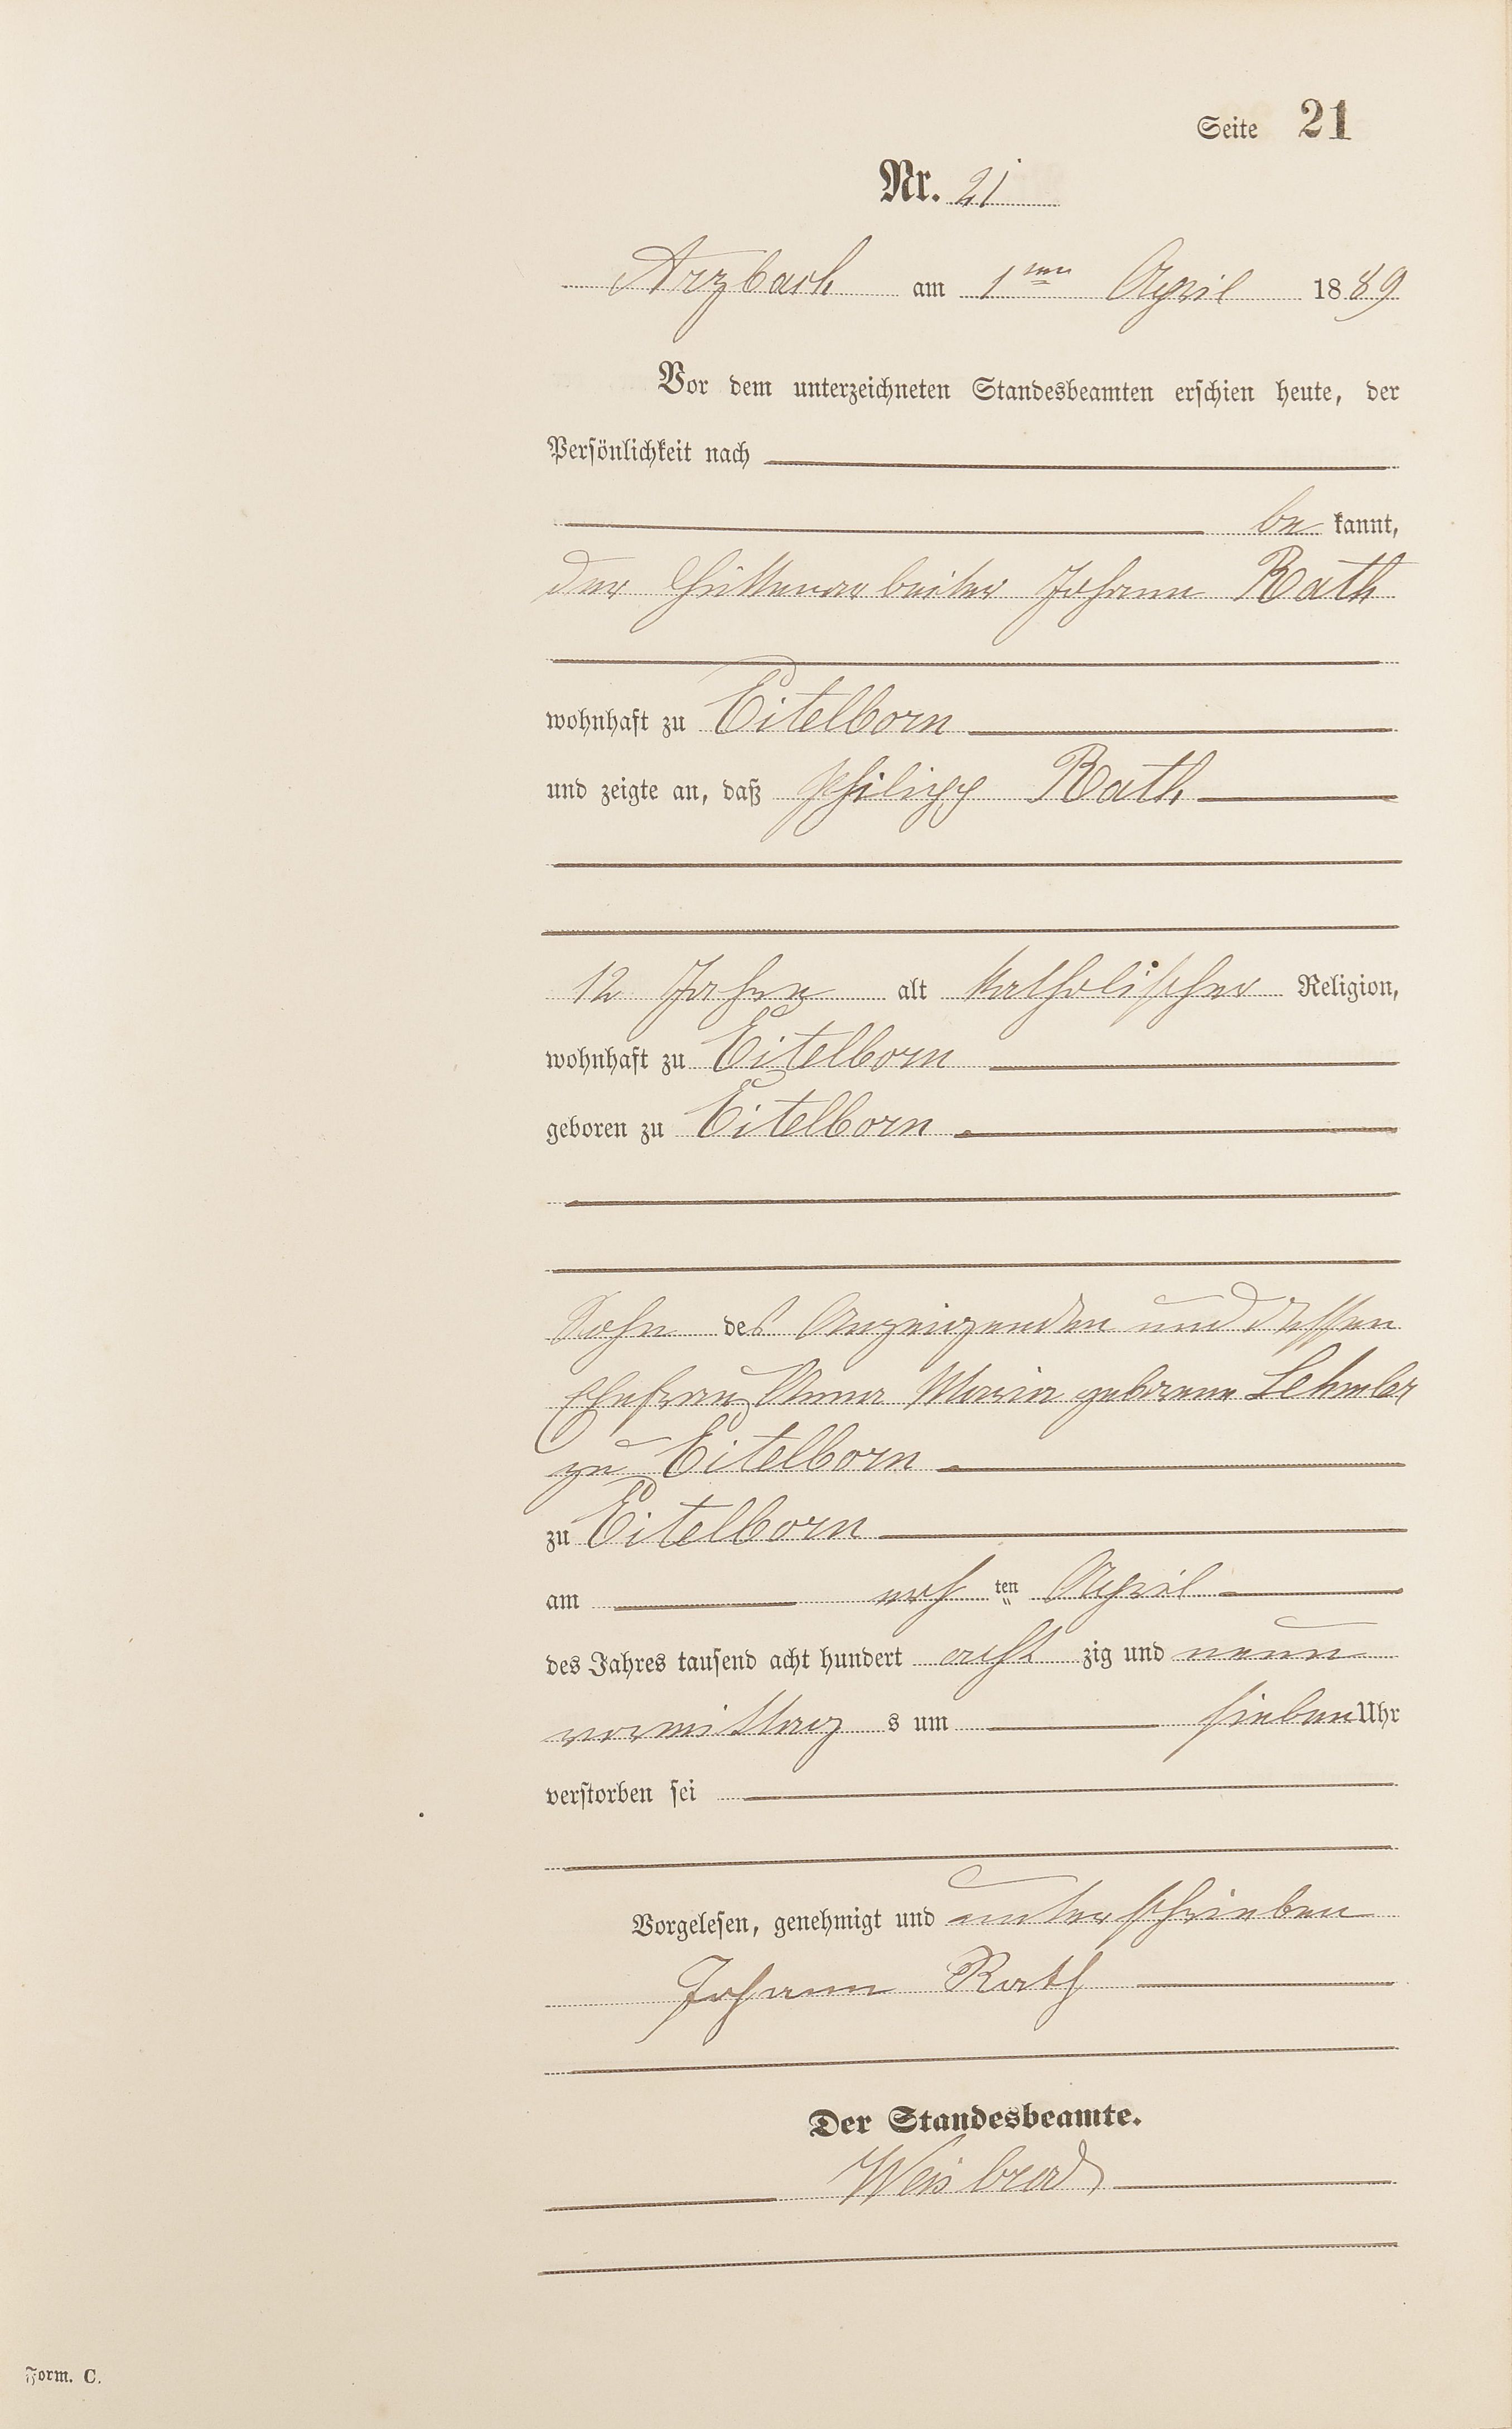 Seite 21
Nr. 21
Arzbach am 1ten April 1889
Vor dem unterzeichneten Standesbeamten erschien heute, der
Persönlichkeit nach
bekannt,
der Hüttenarbeiter Johann Rath
wohnhaft zu Eitelborn
und zeigte an, daß Philipp Rath
12 Jahre alt katholischer Religion,
wohnhaft zu Eitelborn
geboren zu Eitelborn
Sohn des Anzeigenden und dessen
Ehefrau Anna Maria geborene
zu Eitelborn
zu Eitelborn
am ten April
des Jahres tausend acht hundert acht zig und neun
vormittag s um sieben Uhr
verstorben sei
Vorgelesen, genehmigt und unterschrieben
Johann Rath
Der Standesbeamte.
Weisbrod
Form. C.